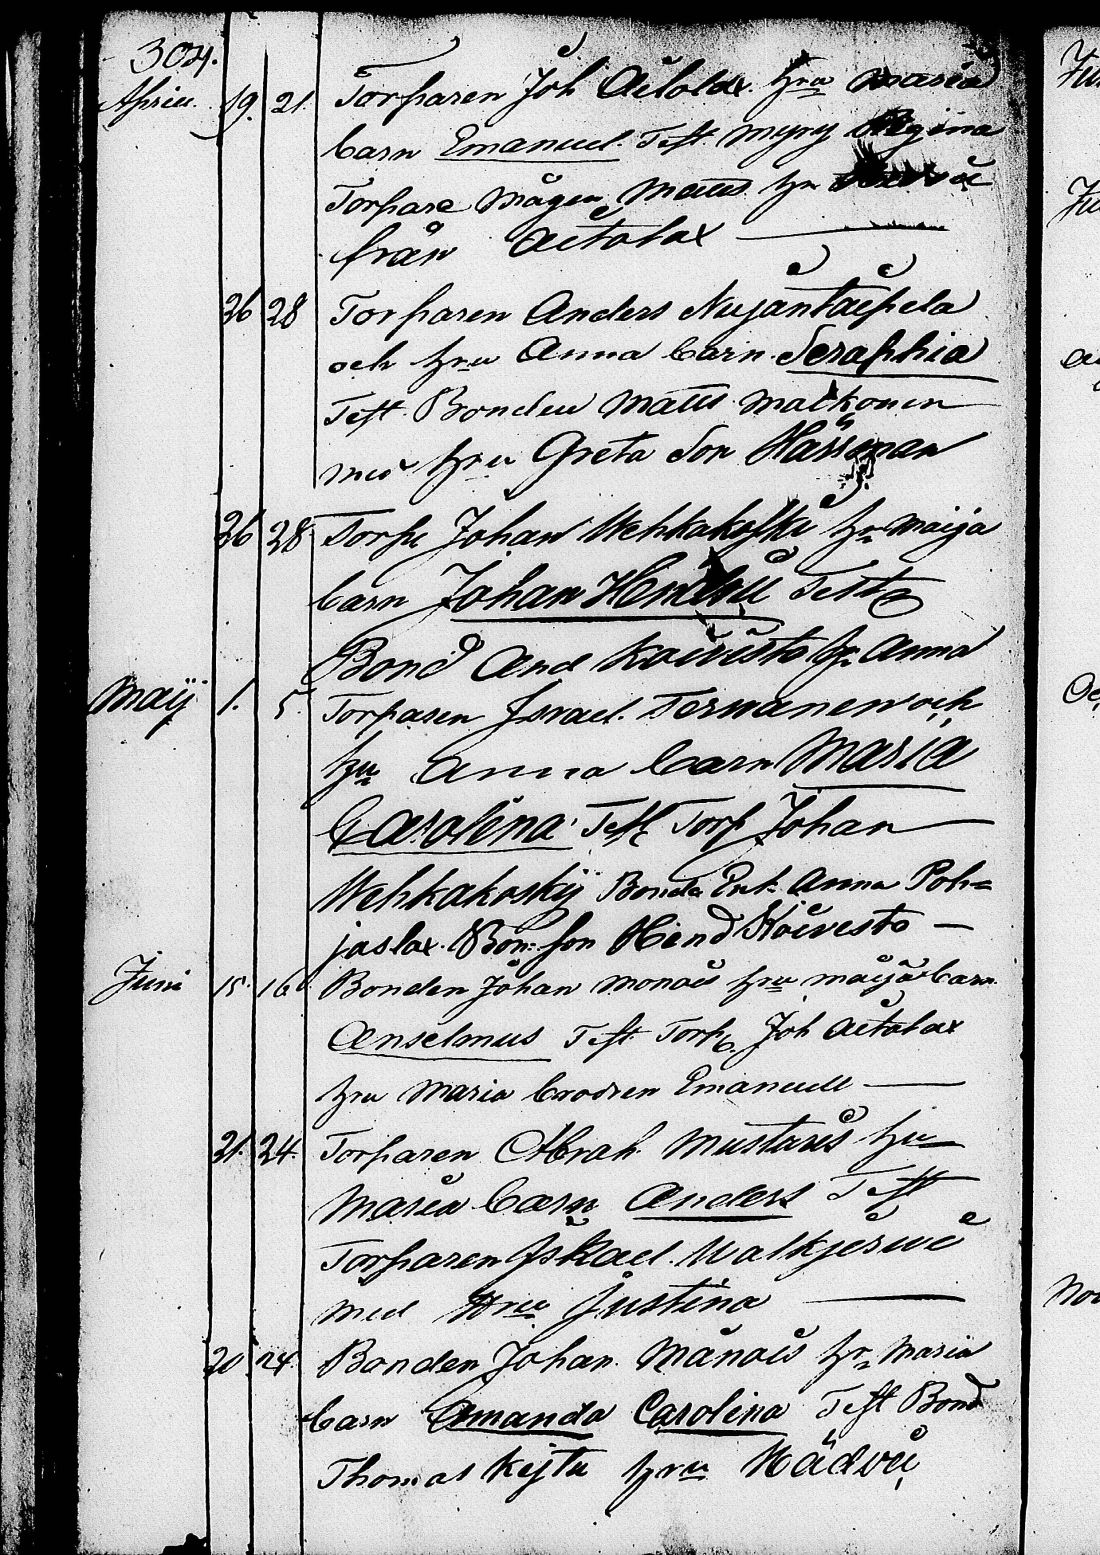 304.
Aprill 19. 21. Torparen Joh Aitolax. hru Maria
barn Emanuel. Test. Regina
Torpare Mågen Matts hr
från Aitolax
26 28 Torparen Anders Nujantaipela
och hru Anna barn. Seraphia
Test. Bonden Matts Matkonen
med hru Greta Son
26 28 Torp Johan Wehkakoski hr Maija
barn Johan Hendric Test
Bond And Koivisto hr Anna
Maij 1. 5. Torparen Israel. Termanen och
hru Anna barn Maria
Carolina Test Torp Johan
Wehkakoskij Bonde Enk Anna Poh=
jaslax. Bon. son Hend Koivesto
Juni 15. 16 Bonden Johan Monais hru Maija barn
Anselmus Test Torp. Joh Aitolax
hru Maria brodren Emanuell
21. 24. Torparen Abrah. Mustais hru
Maria barn Anders Test
Torparen Iskael. Walkjerwi
med Hru Justina
20 24. Bonden Johan. Månais hr Maria
barn Amanda Carolina Test Bond
Thomas Kejtu hru